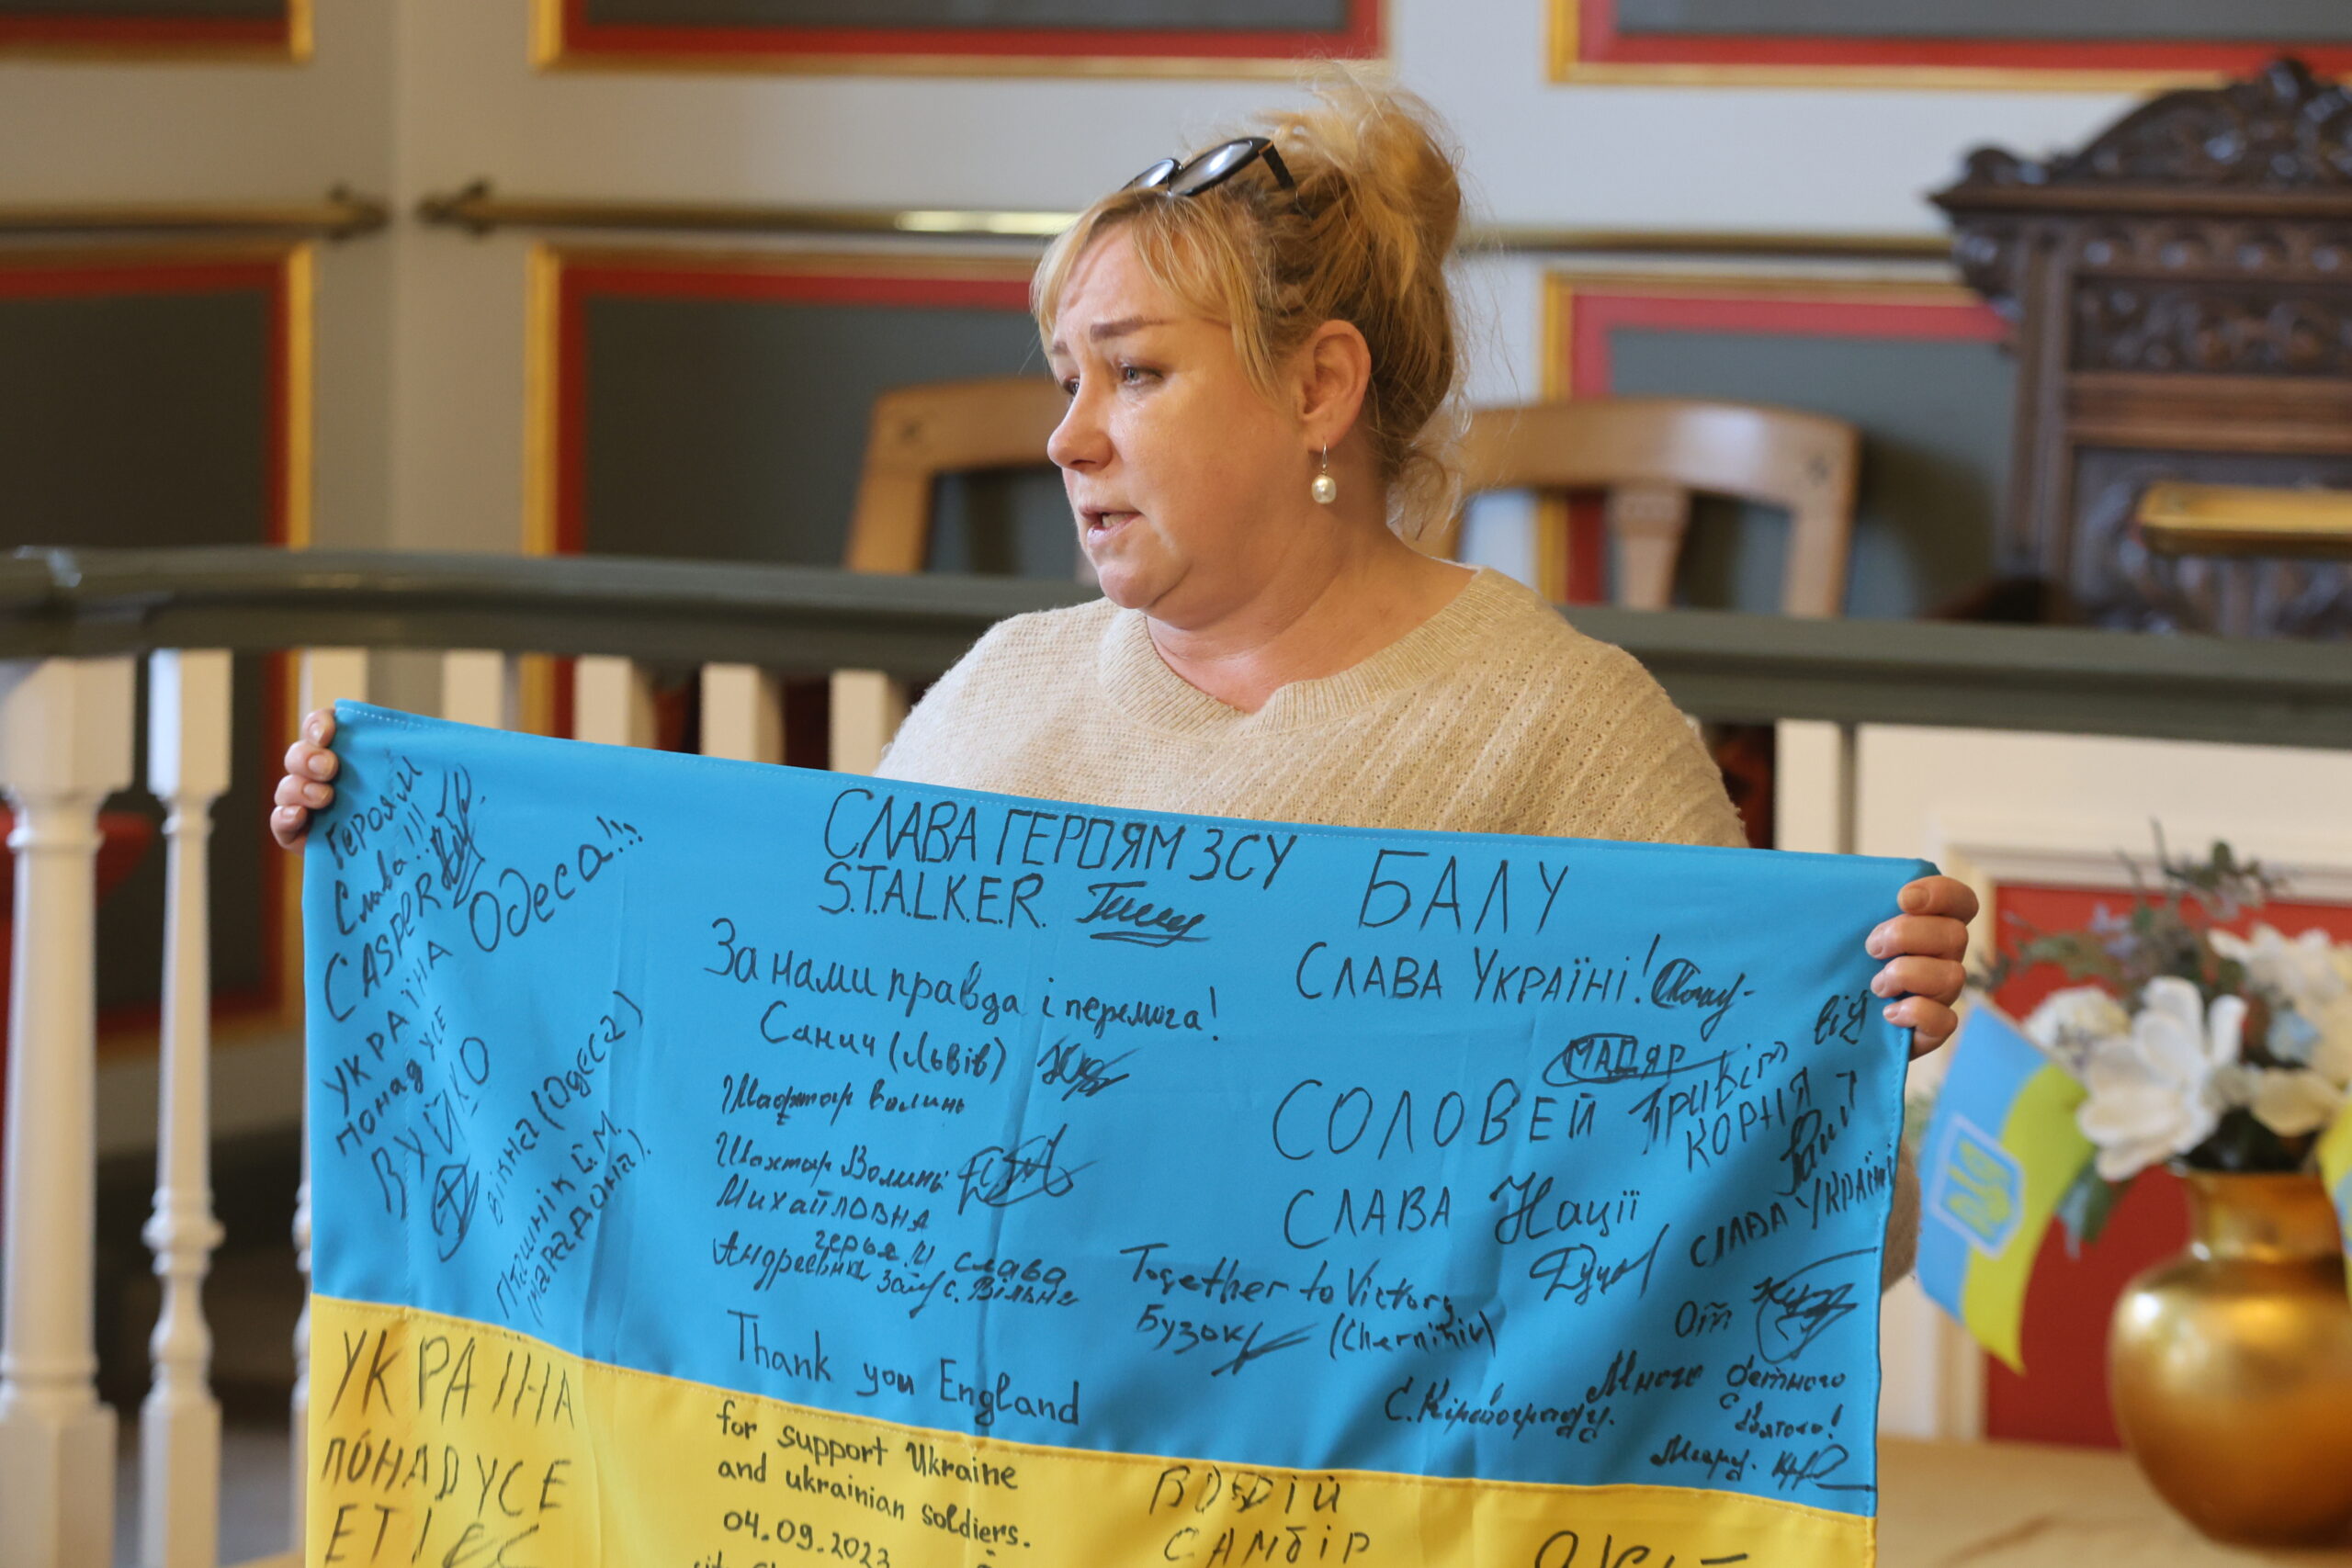 Героям
Слава!!!
CASPER
УКРАЇНА
понад усе
ВУЙКО
Одеса!!!
Вікна (Одеса)
Пташнік С.М.
(Марадона).
СЛАВА ГЕРОЯМ ЗСУ
S.T.A.L.K.E.R.
За нами правда і перемога!
Санич (Львів)
Шахтар Волинь
Шахтар Волинь
Михайловна
Андреевна
слава
Thank you England
for support Ukraine
and ukrainian soldiers.
04.09.2023
БАЛУ
СЛАВА УКРАЇНІ!
МАДЯР
СОЛОВЕЙ
Привіт від
КОРНІЯ
СЛАВА Нації
СЛАВА УКРАЇНІ
Together to Victory
Бузок (Chernihiv)
От
Много
УКРАЇНА
ПОНАД УСЕ
САМБІР